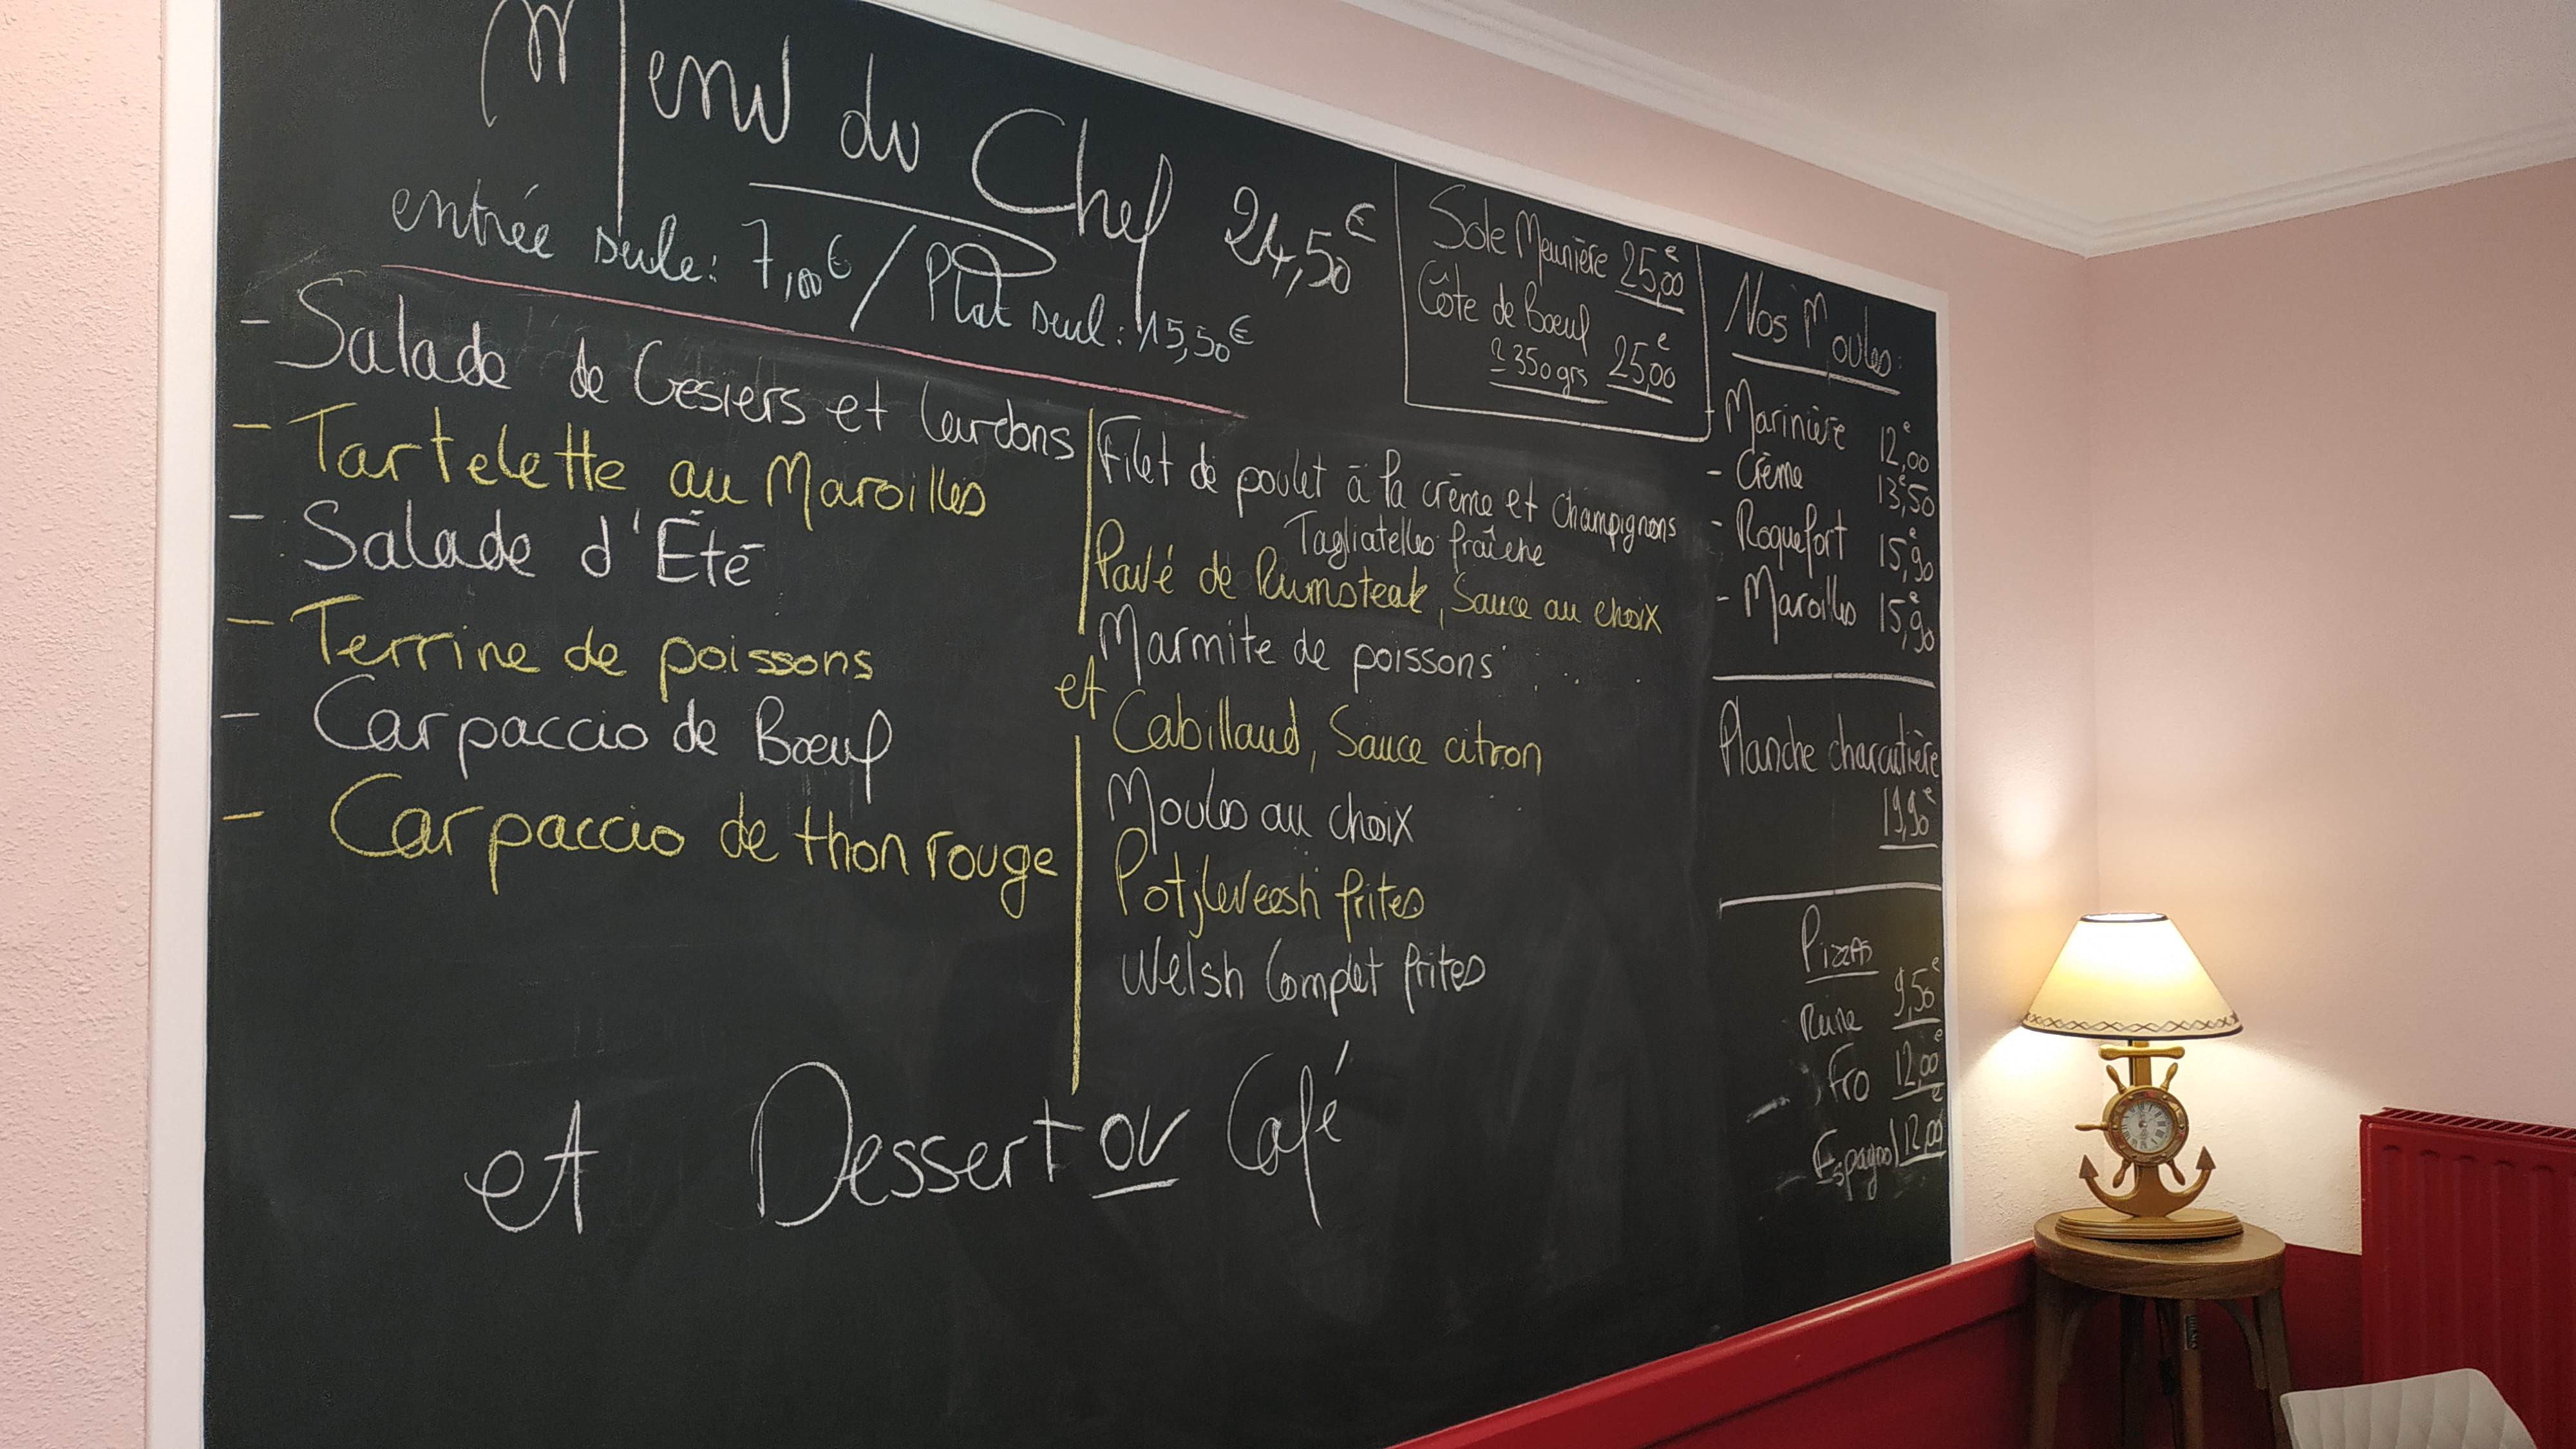 Menu du Chef 24,50€
entrée seule: 7,00€ / Plat seul: 15,50€
- Salade de Gesiers et Lardons
- Tartelette au Maroilles
- Salade d'Eté
- Terrine de poissons
- Carpaccio de Bœuf
- Carpaccio de thon rouge
et
Filet de poulet à la crème et champignons
Tagliatelles fraîche
Pavé de Rumsteak, Sauce au choix
Marmite de poissons
Cabillaud, Sauce citron
Moules au choix
Potjleveesh frites
Welsh Complet frites
et Dessert ou Café
Sole Meunière 25,00€
Côte de Bœuf
± 350 grs 25,00€
Nos Moules:
- Marinière 12,00€
- Crème 13,50€
- Roquefort 15,90€
- Maroilles 15,90€
Planche charcutière
19,90€
Pizzas
Reine 9,50€
Fro 12,00€
Espagnol 12,00€